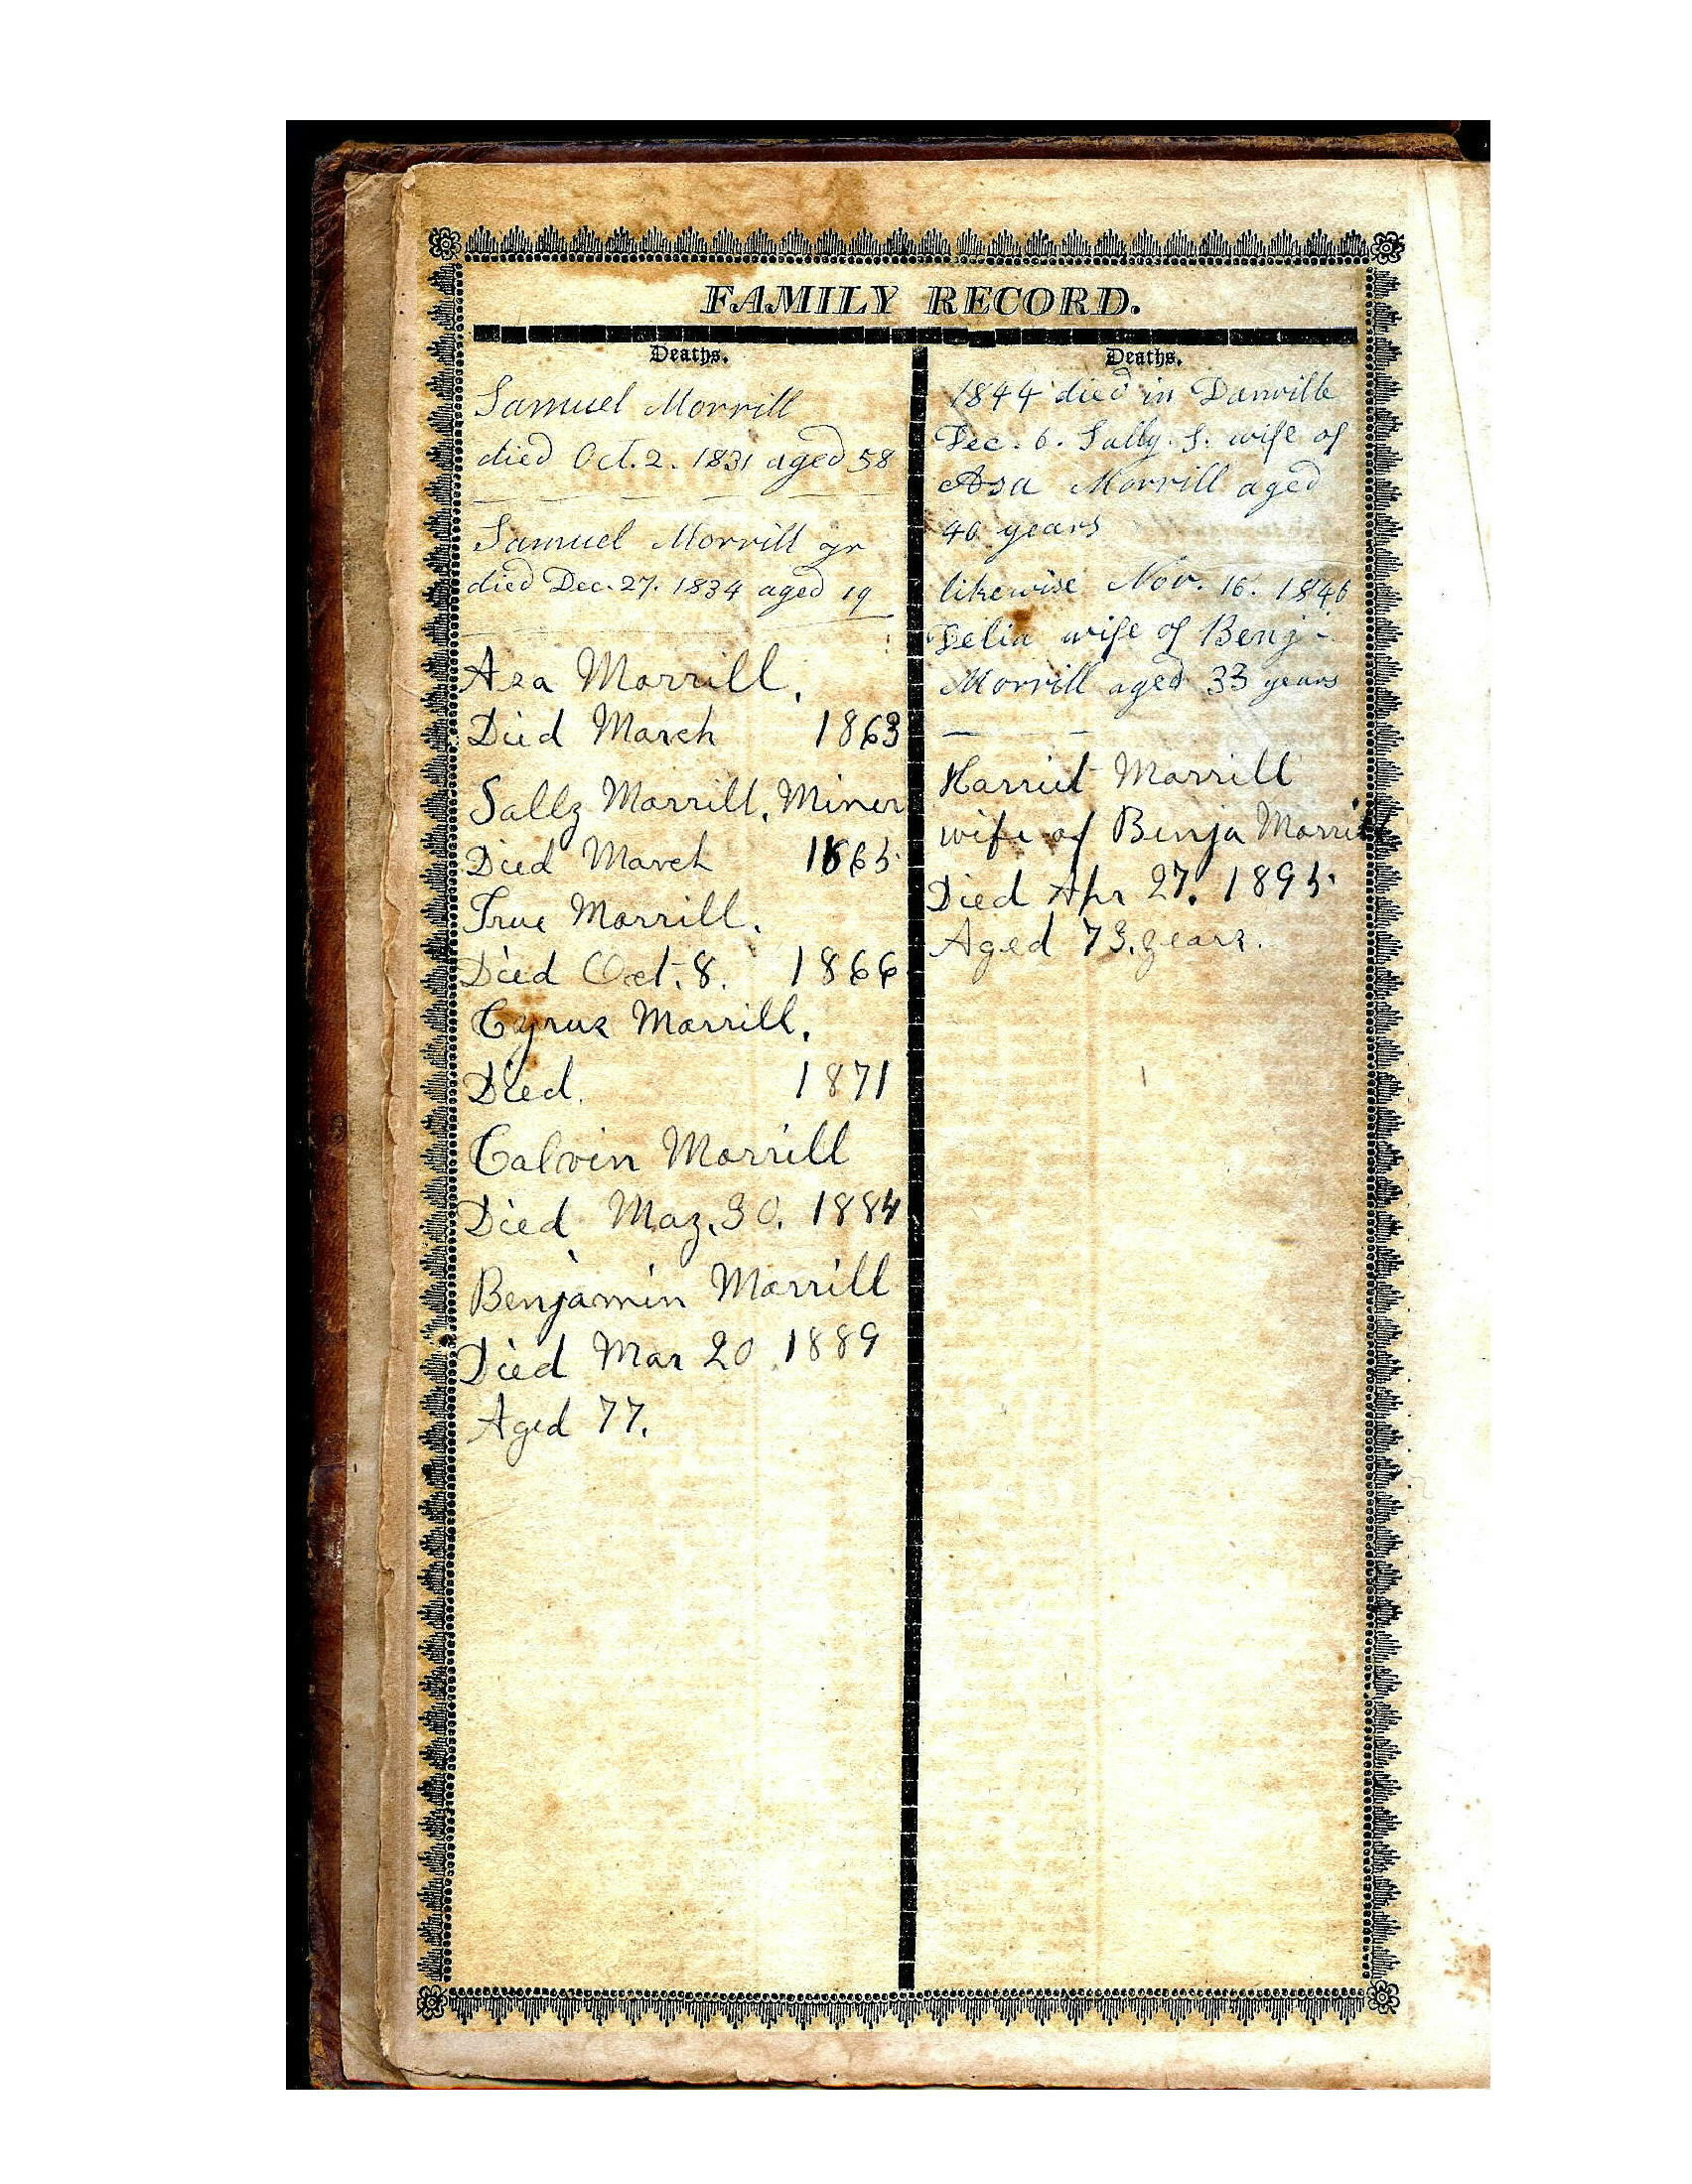 FAMILY RECORD.
Deaths.
Samuel Morrill
died Oct. 2. 1831 aged 58
Samuel Morrill jr
died Dec. 27. 1834 aged 19
Asa Morrill.
Died March 1863
Sally Morrill. Miner
Died March 1865.
True Morrill.
Died Oct. 8. 1866
Cyrus Morrill.
Died. 1871
Calvin Morrill
Died May. 30. 1884
Benjamin Morrill
Died Mar 20. 1889
Aged 77.
Deaths.
1844 died in Danville
Dec. 6. Sally. S. wife of
Asa Morrill aged
40 years
likewise Nov. 16. 1846
Delia wife of Benj
Morrill aged 33 years
Harriet Morrill
wife of Benja Morrill
Died Apr 27. 1895.
Aged 73. years.